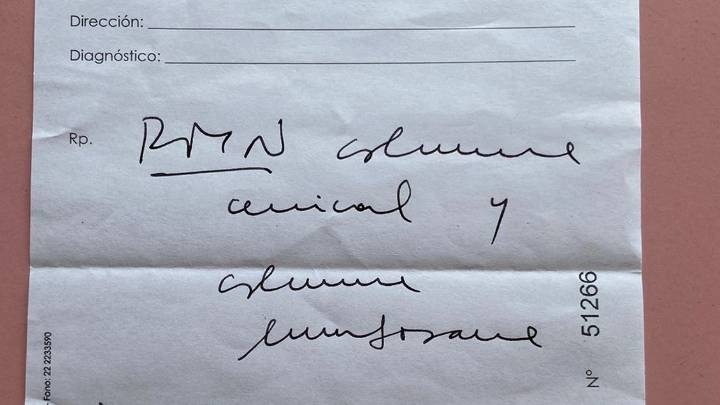 Dirección:
Diagnóstico:
Rp. RMN columna
cervical y
columna
lumbosacra
Nº 51266
Fono: 22 2233590